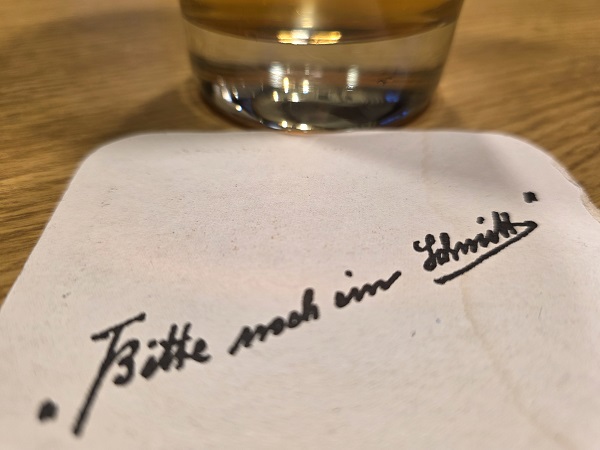 "Bitte noch ein Schnitt"